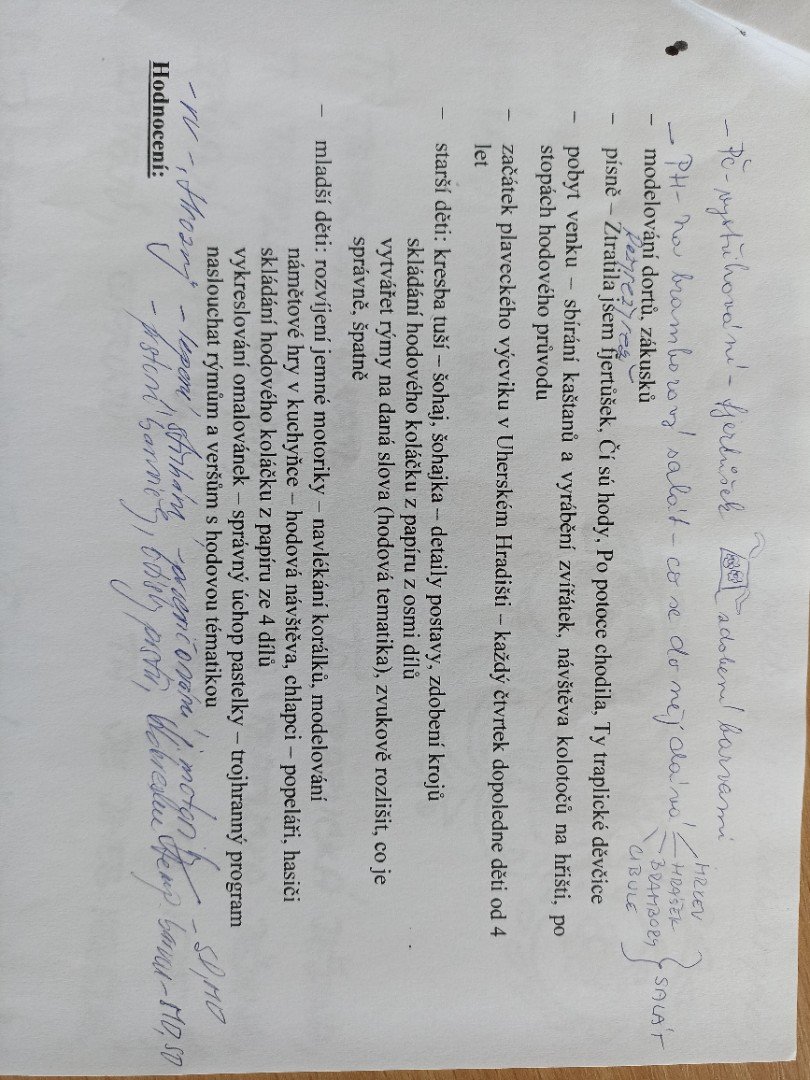 - Pč - vystřihování - fjertůšek zdobení barvami
- PH - na bramborový salát - co se do něj dává
MRKEV
HRÁŠEK
BRAMBORY
CIBULE
SALÁT
– modelování dortů, zákusků
– písně – Ztratila jsem fjertůšek, Čí sú hody, Po potoce chodila, Ty traplické děvčice
– pobyt venku – sbírání kaštanů a vyrábění zvířátek, návštěva kolotočů na hřišti, po
stopách hodového průvodu
– začátek plaveckého výcviku v Uherském Hradišti – každý čtvrtek dopoledne děti od 4
let
– starší děti: kresba tuší – šohaj, šohajka – detaily postavy, zdobení krojů
skládání hodového koláčku z papíru z osmi dílů
vytvářet rýmy na daná slova (hodová tematika), zvukově rozlišit, co je
správně, špatně
– mladší děti: rozvíjení jemné motoriky – navlékání korálků, modelování
námětové hry v kuchyňce – hodová návštěva, chlapci – popeláři, hasiči
skládání hodového koláčku z papíru ze 4 dílů
vykreslování omalovánek – správný úchop pastelky – trojhranný program
naslouchat rýmům a veršům s hodovou tématikou
- VV - "Hrozny" - lepení, stříhání - procvičování j. motoriky - SD, MD
- prstové barvy, otisky prstů, - MD, SD
Hodnocení: